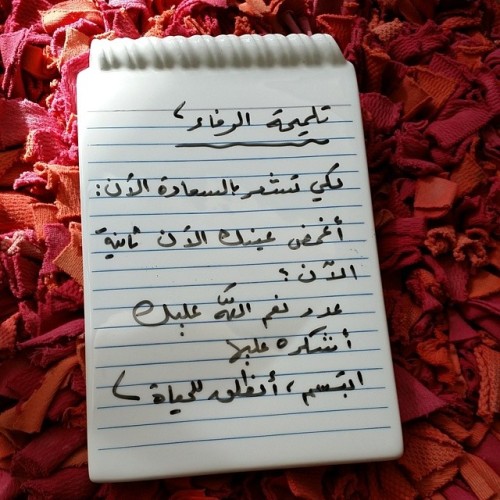 تلميحة الرفاء،
لكي تستشعر بالسعادة الآن:
أغمض عينك الآن ثانيةً
الآن؛
عدد نعم الله عليك
أشكره عليها
ابتسم، أنطلق للحياة